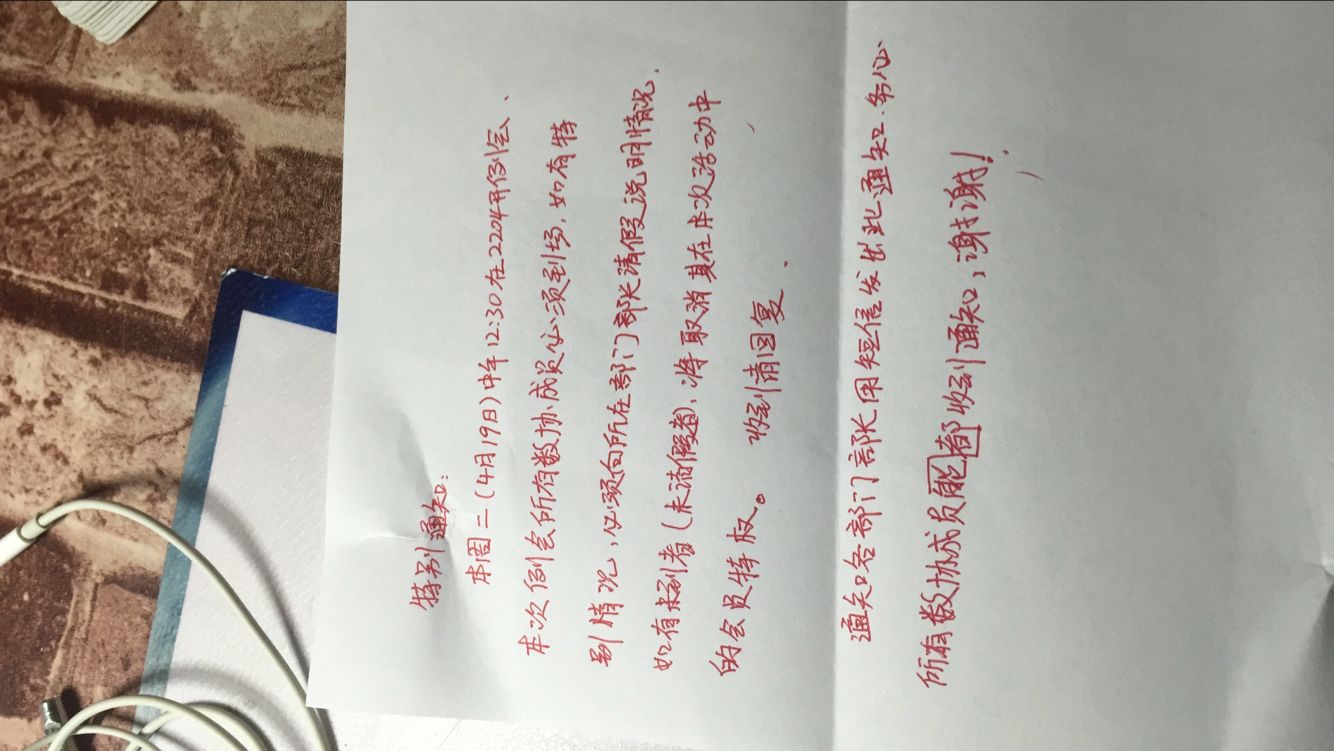 特别通知:
本周二(4月19日)中午12:30在2204开例会.
本次例会所有数协成员必须到场.如有特
别情况,必须向所在部门部长请假说明情况.
如有未到者(未请假者),将取消其在本次活动中
的会员特权。 收到请回复.
通知各部门部长用短信发出此通知.务必
所有数协成员能都收到通知,谢谢!